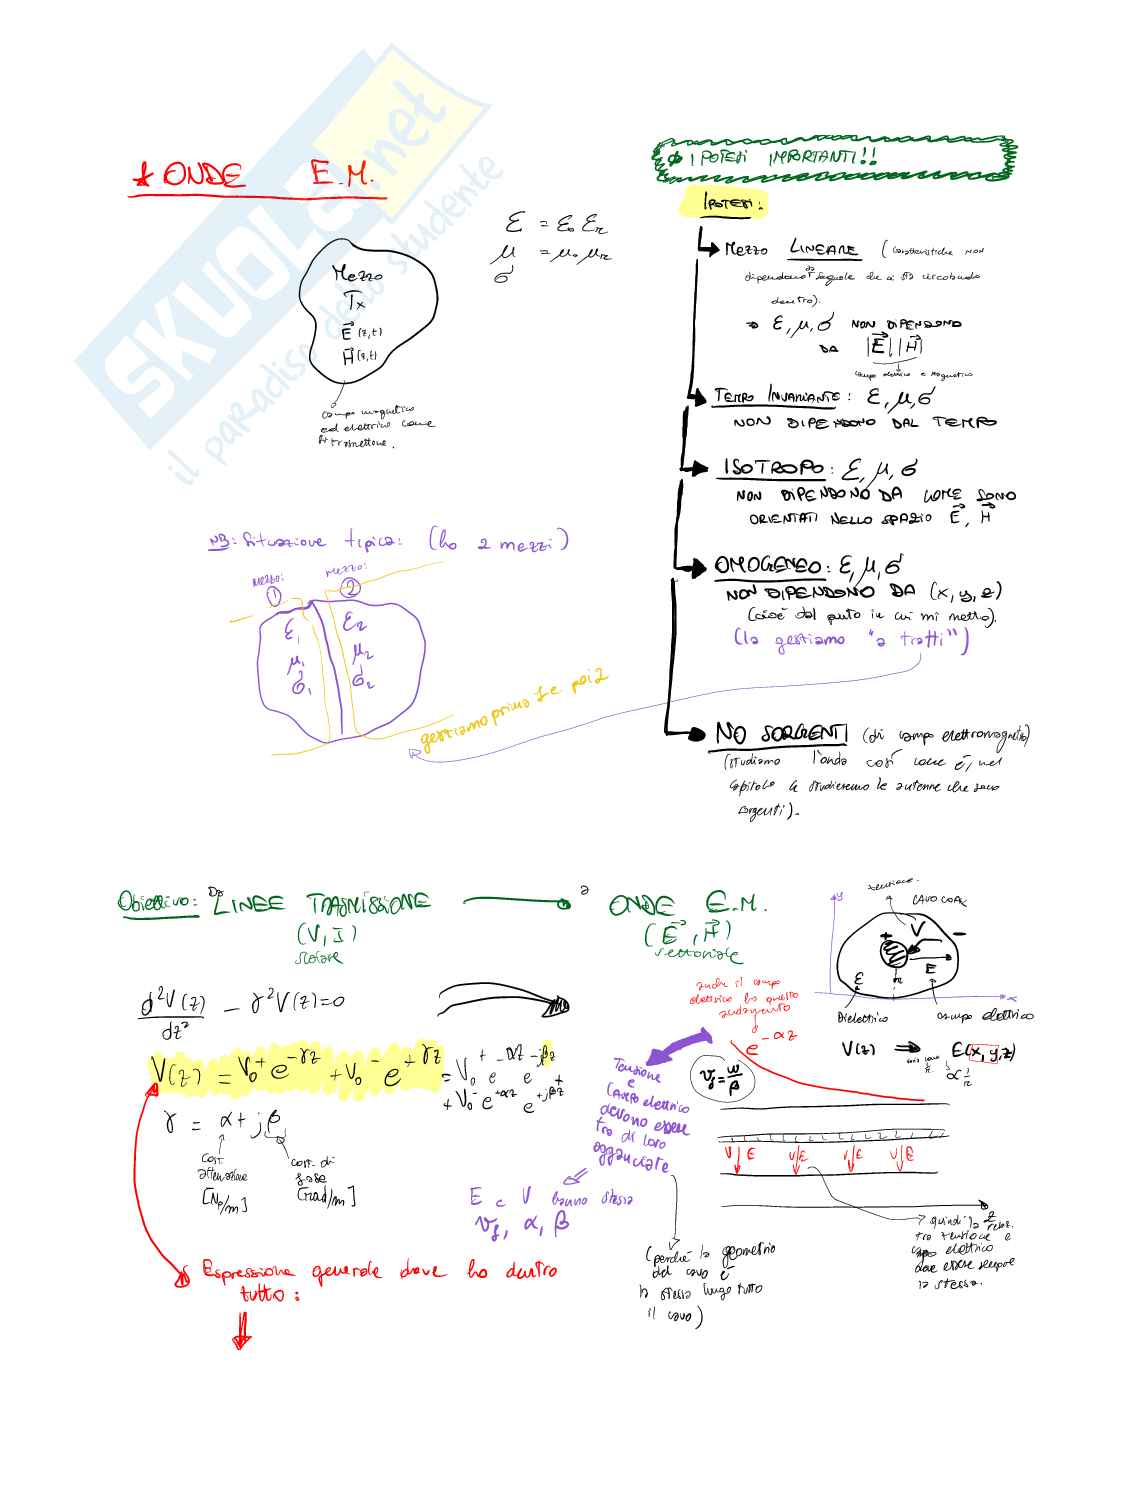 SKUOLA.net
il paradiso dello studente
* ONDE E.M.
Mezzo
Tx
E (z,t)
H (z,t)
campo magnetico
ed elettrico come
si trasmettono.
ε = ε₀ εr
μ = μ₀ μr
σ
IPOTESI IMPORTANTI!!
IPOTESI:
Mezzo LINEARE (caratteristiche non
dipendono da segnale che ci sta circolando
dentro).
⇒ ε, μ, σ NON DIPENDONO
DA |E| |H|
campo elettrico e magnetico
TEMPO INVARIANTE: ε, μ, σ
NON DIPENDONO DAL TEMPO
ISOTROPO: ε, μ, σ
NON DIPENDONO DA COME SONO
ORIENTATI NELLO SPAZIO E, H
OMOGENEO: ε, μ, σ
NON DIPENDONO DA (x, y, z)
(cioè dal punto in cui mi metto).
(la gestiamo "a tratti")
NO SORGENTI (di campo elettromagnetico)
(studiamo l'onda così come è, nel
capitolo 4 studieremo le antenne che sono
sorgenti).
NB: Situazione tipica: (ho 2 mezzi)
mezzo: 1
mezzo: 2
ε₁ ε₂
μ₁ μ₂
σ₁ σ₂
gestiamo prima 1 e poi 2
Obiettivo: Da LINEE TRASMISSIONE
(V, I)
scalare
a ONDE E.M.
(E, H)
vettoriale
d²V(z)/dz² - γ²V(z) = 0
V(z) = V₀⁺ e^-γz + V₀⁻ e^+γz = V₀⁺ e^-αz e^-jβz +
+ V₀⁻ e^+αz e^+jβz
γ = α + jβ
cost. attenuazione
[Np/m]
cost. di fase
[rad/m]
Espressione generale dove ho dentro
tutto:
anche il campo
elettrico ha questo
andamento
e^-αz
Tensione
e
Campo elettrico
devono essere
tra di loro
agganciate
E e V hanno stessa
vf, α, β
vf = ω/β
(perché la geometria
del cavo è
la stessa lungo tutto
il cavo)
tensione
CAVO COAX
y
V
+ -
E
ε
r
x
Dielettrico
campo elettrico
V(z) ⇒ E(x, y, z)
α 1/r
V E
V E
V E
V E
z
quindi la relaz.
tra tensione e
campo elettrico
deve essere sempre
la stessa.